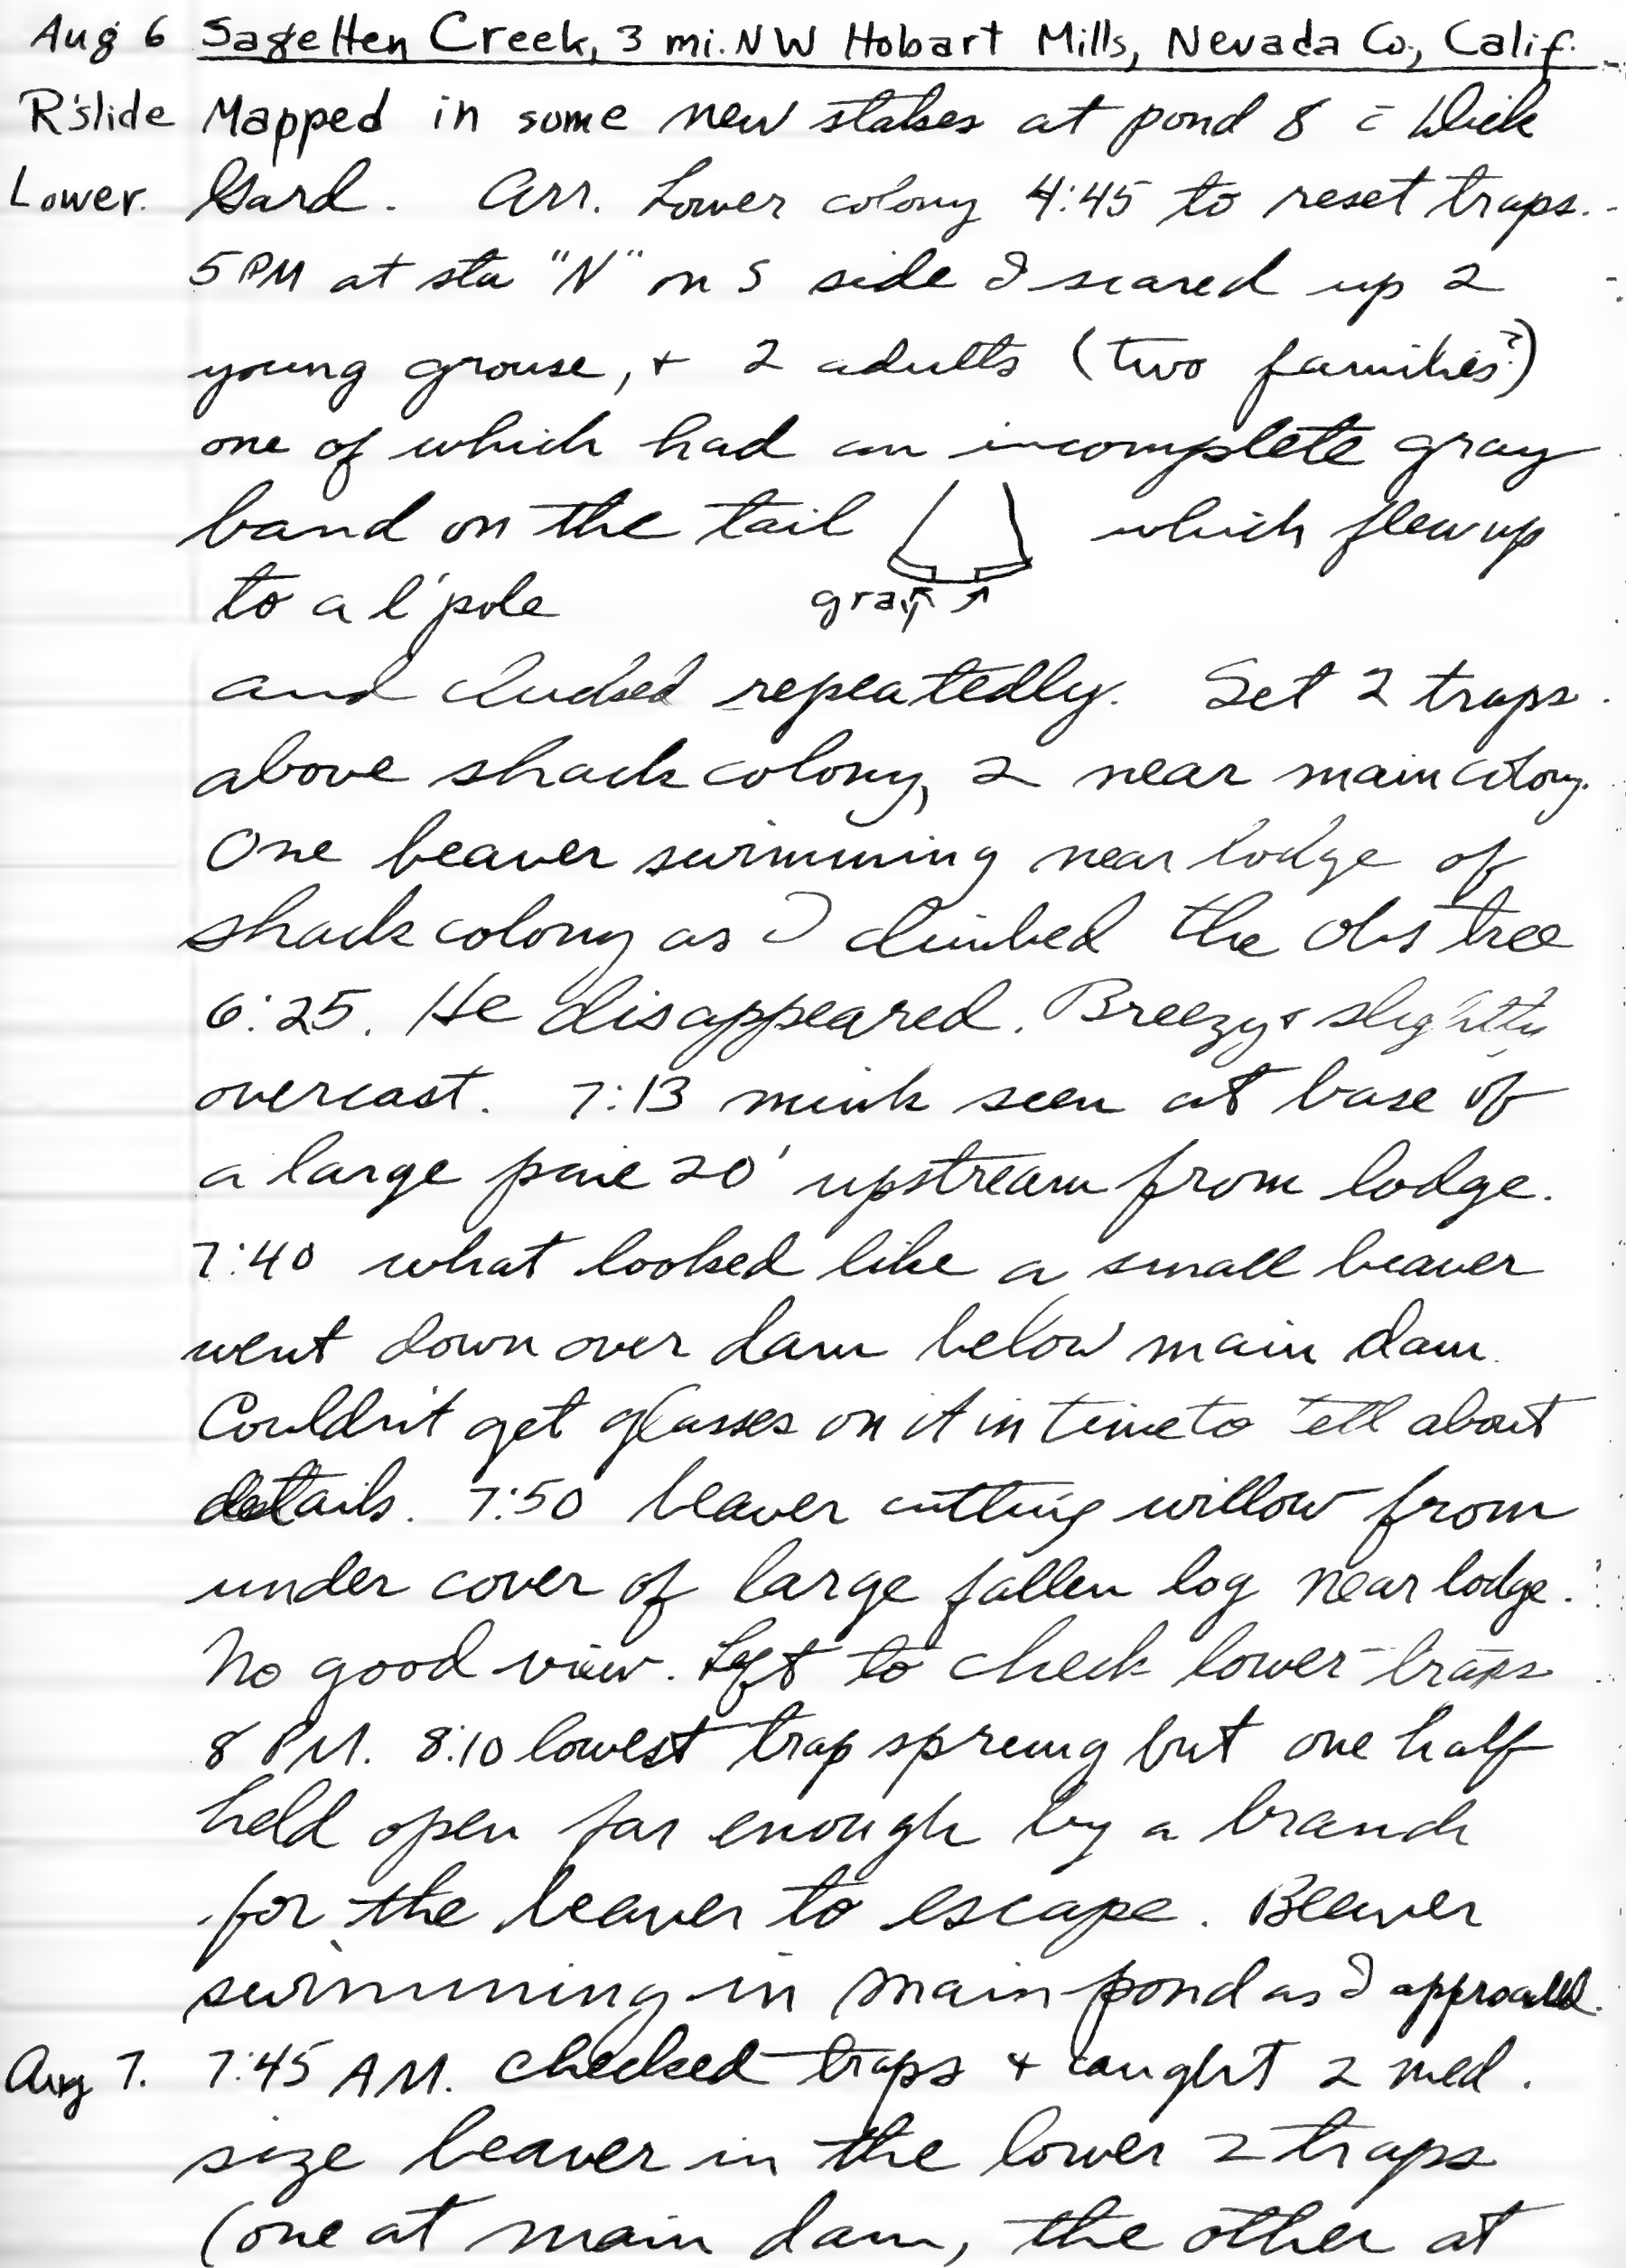 Aug 6 Sagehen Creek, 3 mi. NW Hobart Mills, Nevada Co., Calif.
R'slide Mapped in some new stakes at pond 8 c̄ Dick
Lower. Gard. Arr. Lower colony 4:45 to reset traps.
5 PM at sta "N" on S side I scared up 2
young grouse, + 2 adults (two families?)
one of which had an incomplete gray
band on the tail which flew up
to a l'pole gray
and clucked repeatedly. Set 2 traps
above shack colony, 2 near main colony.
One beaver swimming near lodge of
shack colony as I climbed the obs tree
6:25. He disappeared. Breezy & slightly
overcast. 7:13 mink seen at base of
a large pine 20' upstream from lodge.
7:40 what looked like a small beaver
went down over dam below main dam.
Couldn't get glasses on it in time to tell about
details. 7:50 beaver cutting willow from
under cover of large fallen log near lodge.
No good view. Left to check lower traps
8 PM. 8:10 lowest trap sprung but one half
held open far enough by a branch
for the beaver to escape. Beaver
swimming in main pond as I approached.
Aug 7. 7:45 AM. checked traps + caught 2 med.
size beaver in the lower 2 traps
(one at main dam, the other at